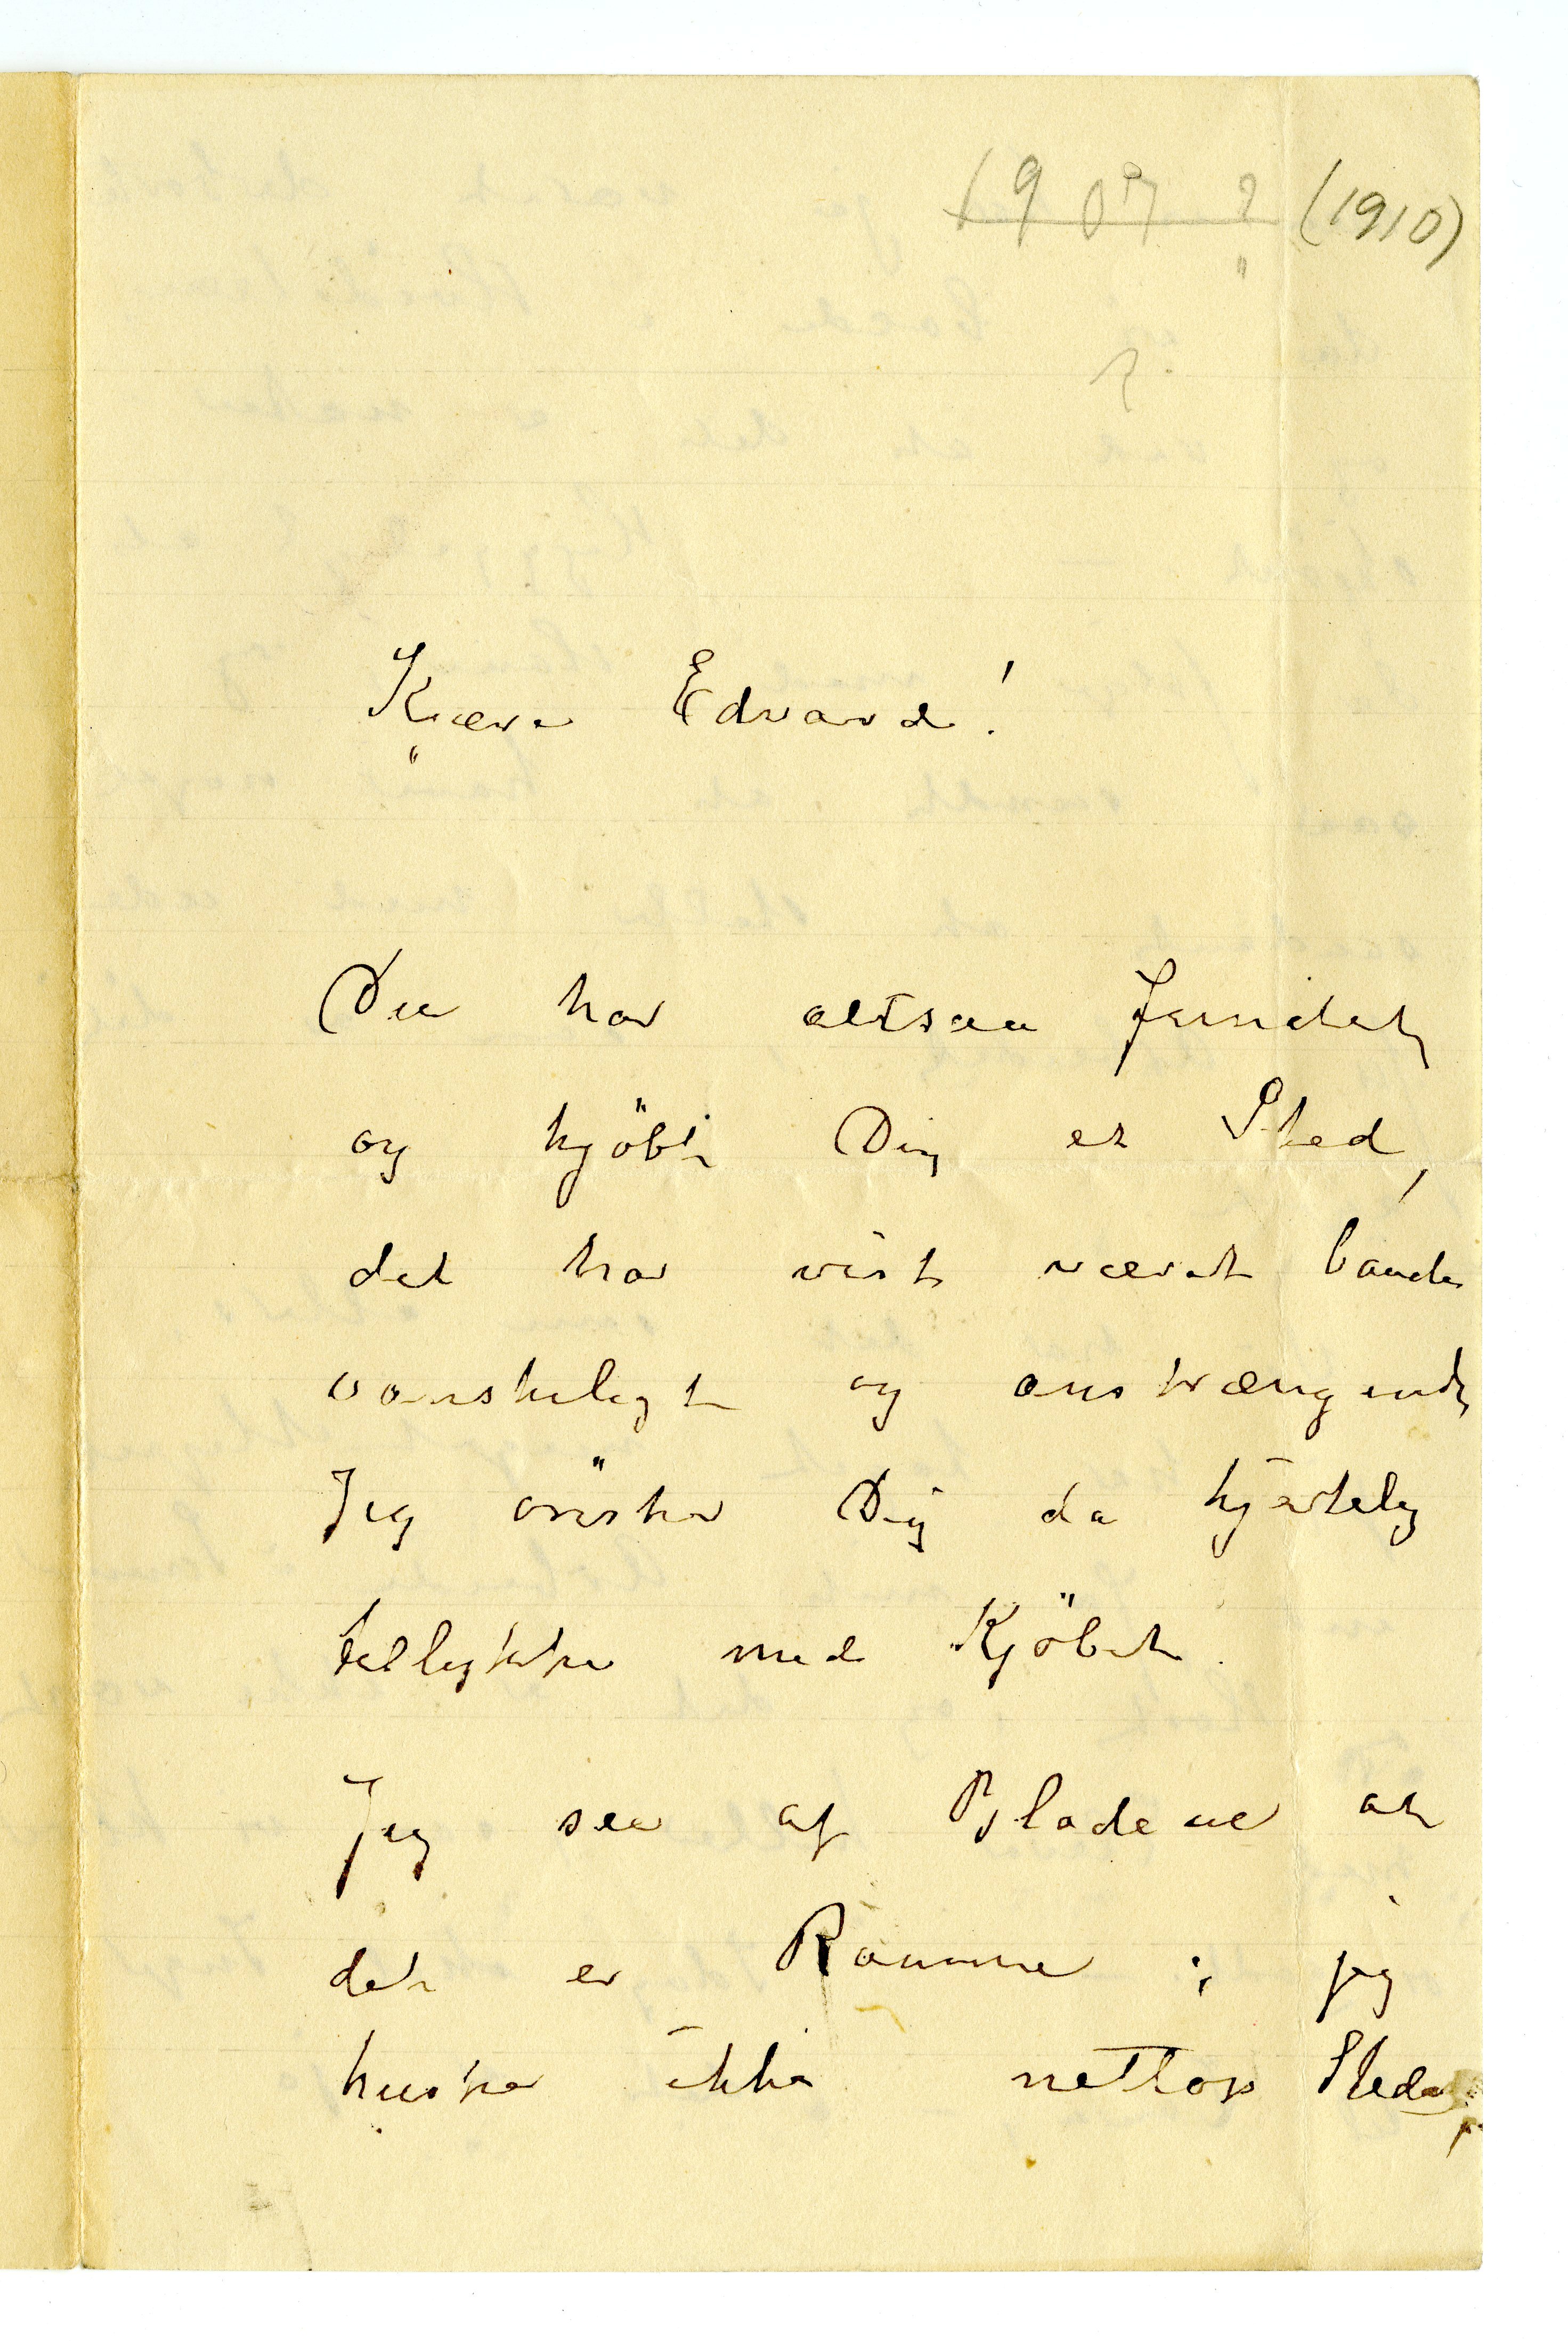 1909 ? (1910)
?
Kjære Edvard!
Du har altsaa fundet
og kjöbt Dig et Sted,
det har vist været baade
vanskeligt og anstrængende
Jeg önsker Dig da hjertelig
tillykke med Kjöbet.
Jeg seer af Bladene at
det er Ramme ; jeg
husker ikke netop Stedet,